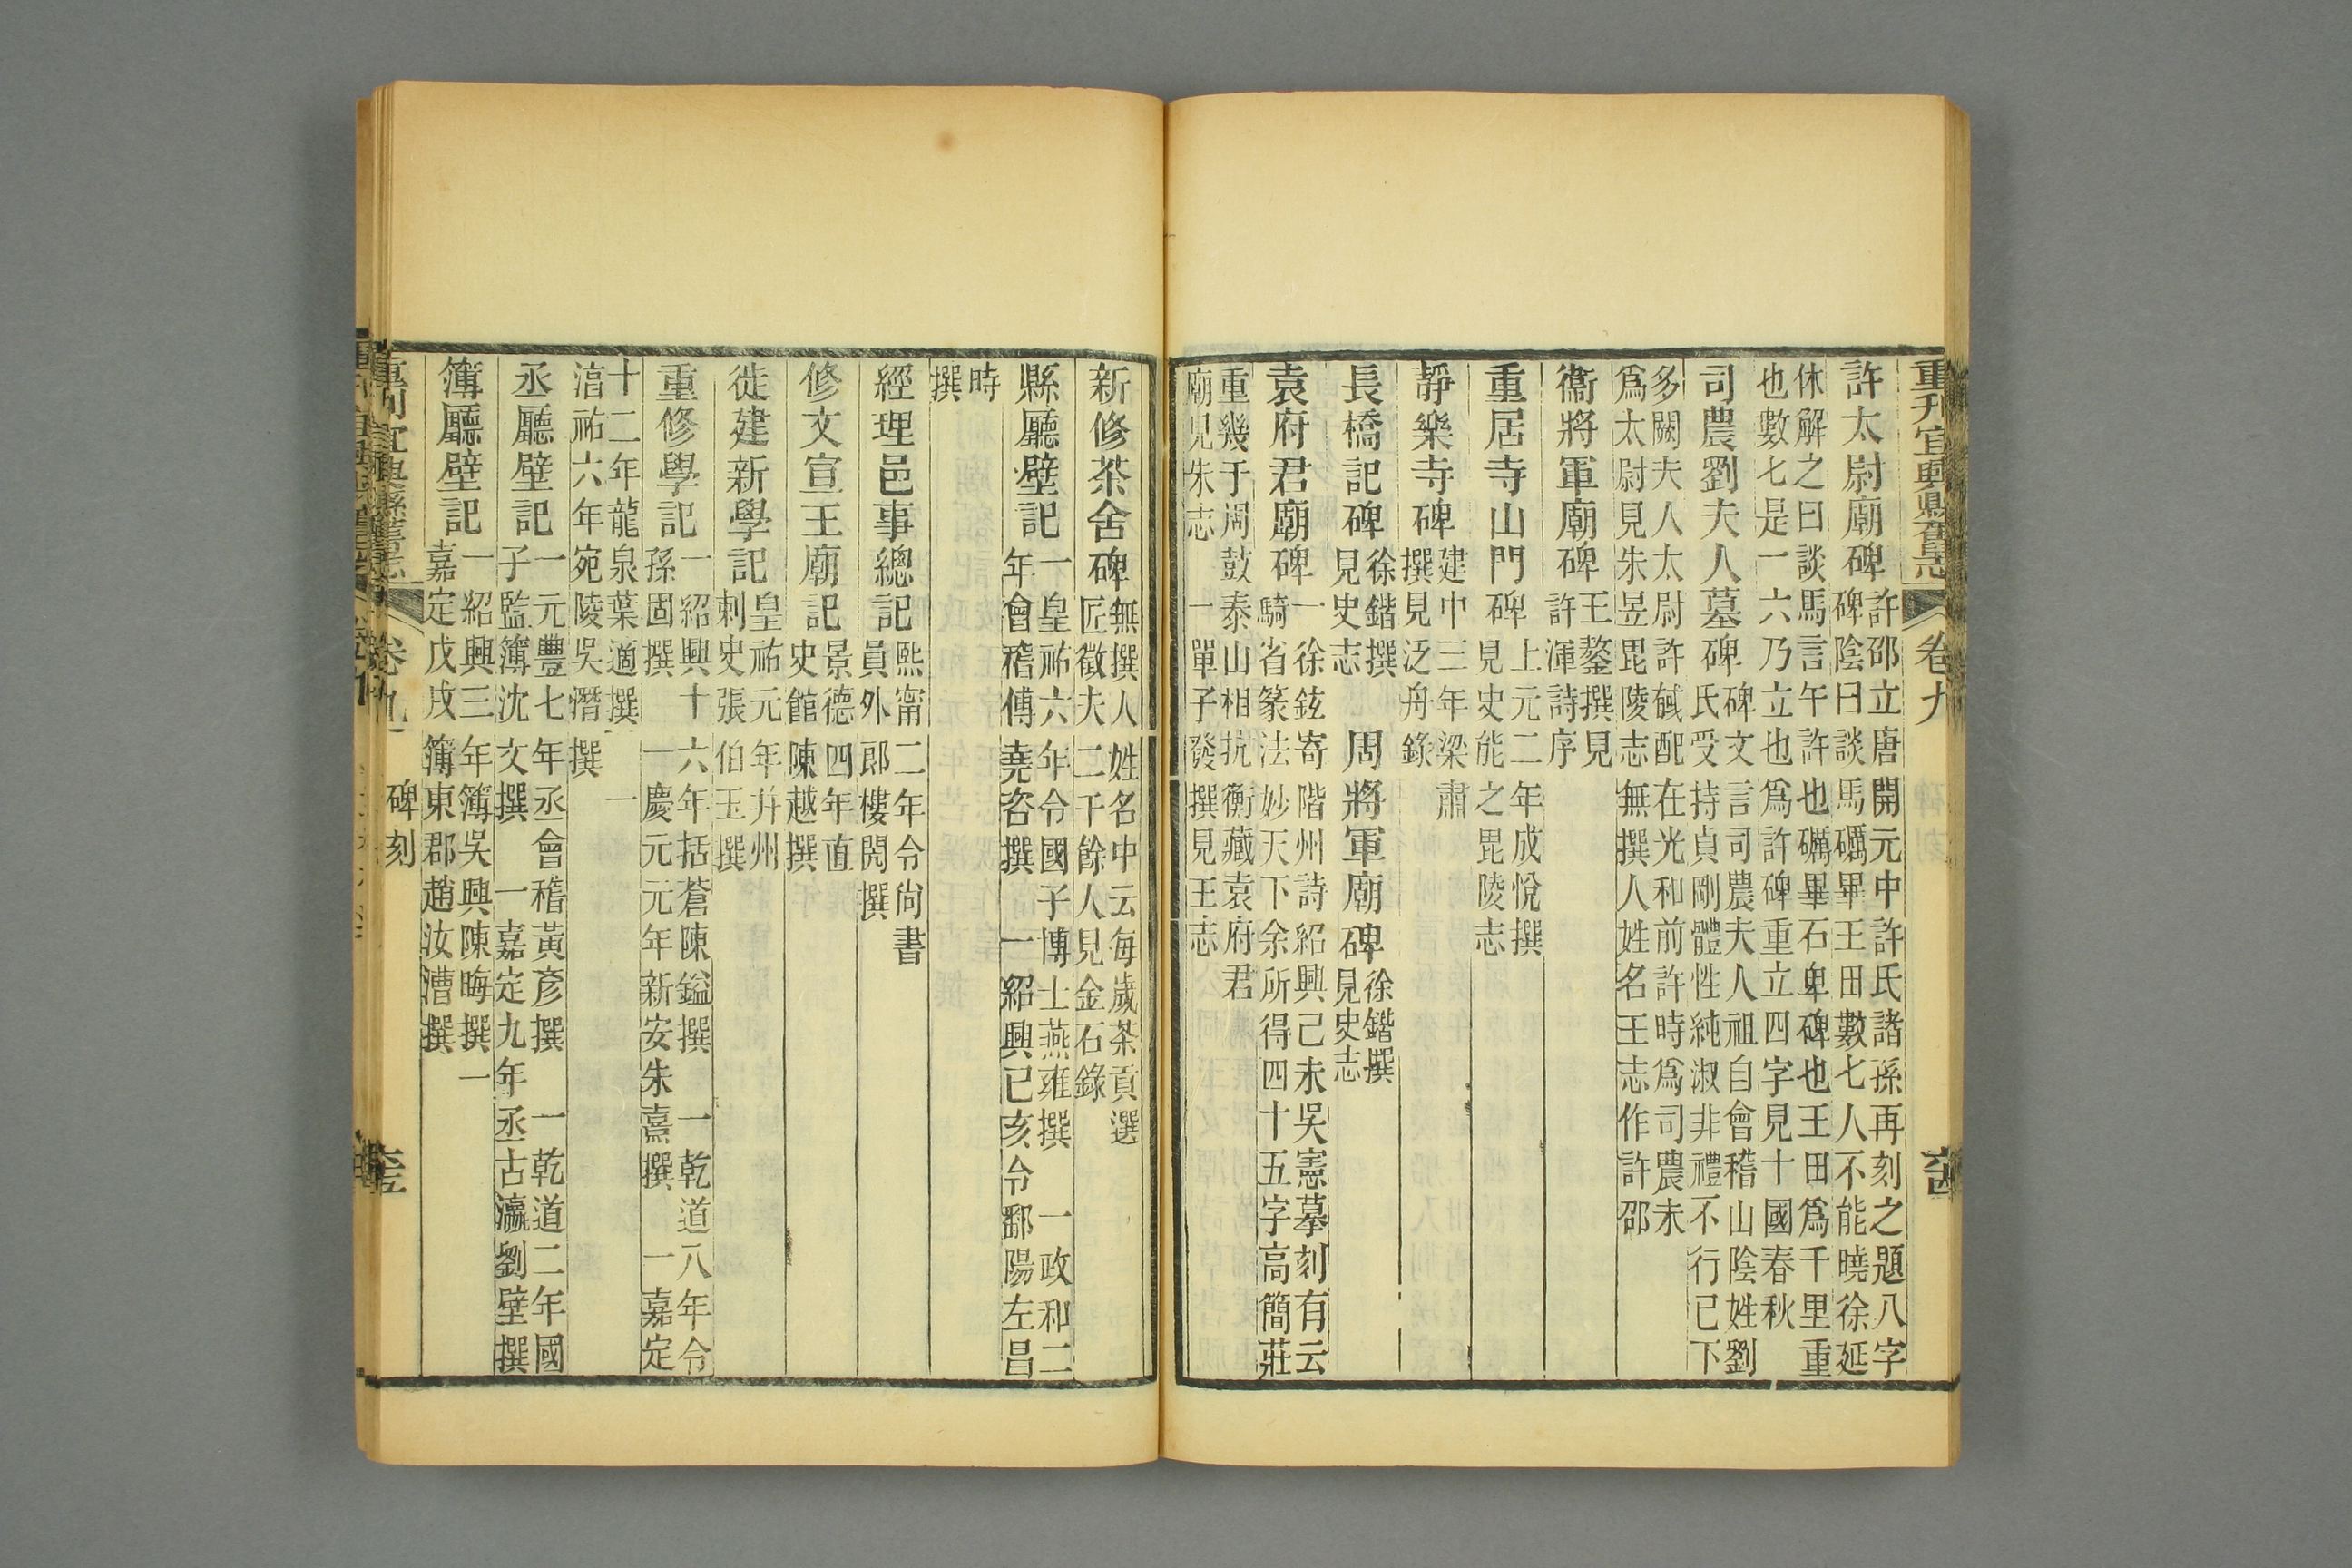 重刊宜興縣舊志
卷九
許太尉廟碑許邵立唐開元中許氏諸孫再刻之題八字
碑陰曰談馬礪畢王田數七人不能曉徐延
休解之曰談馬言午許也礪畢石卑碑也王田爲千里重
也數七是一六乃立也爲許碑重立四字見十國春秋
司農劉夫人墓碑碑文言司農夫人祖自會稽山陰姓劉
氏受持貞剛體性純淑非禮不行已下
多闕夫人太尉許馘配在光和前許時爲司農未
爲太尉見朱昱毘陵志無撰人姓名王志作許邵
衞將軍廟碑王鏊撰見
許渾詩序
重居寺山門碑上元二年成悅撰
見史能之毘陵志
靜樂寺碑建中三年梁肅
撰見泛舟錄
長橋記碑徐鍇撰
見史志
周將軍廟碑徐鍇撰
見史志
袁府君廟碑一徐鉉寄階州詩紹興己未吳憲摹刻有云
騎省篆法妙天下余所得四十五字高簡莊
重幾于周鼓泰山相抗衡藏袁府君
廟見朱志一單子發撰見王志
新修茶舍碑無撰人姓名中云每歲茶貢選
匠徵夫二千餘人見金石錄
縣廳壁記一皇祐六年令國子博士燕雍撰一政和二
年會稽傅堯咨撰一紹興己亥令鄱陽左昌
時
撰
經理邑事總記熙甯二年令尙書
員外郎樓閌撰
修文宣王廟記景德四年直
史館陳越撰
徙建新學記皇祐元年幷州
刺史張伯玉撰
重修學記一紹興十六年括蒼陳鎰撰一乾道八年令
孫固撰一慶元元年新安朱熹撰一嘉定
十二年龍泉葉適撰一
淯祐六年宛陵吳潛撰
丞廳壁記一元豐七年丞會稽黃彥撰一乾道二年國
子監簿沈文撰一嘉定九年丞古瀛劉壁撰
簿廳壁記一紹興三年簿吳興陳晦撰一
嘉定戊戌簿東郡趙汝漕撰
卷九
碑刻